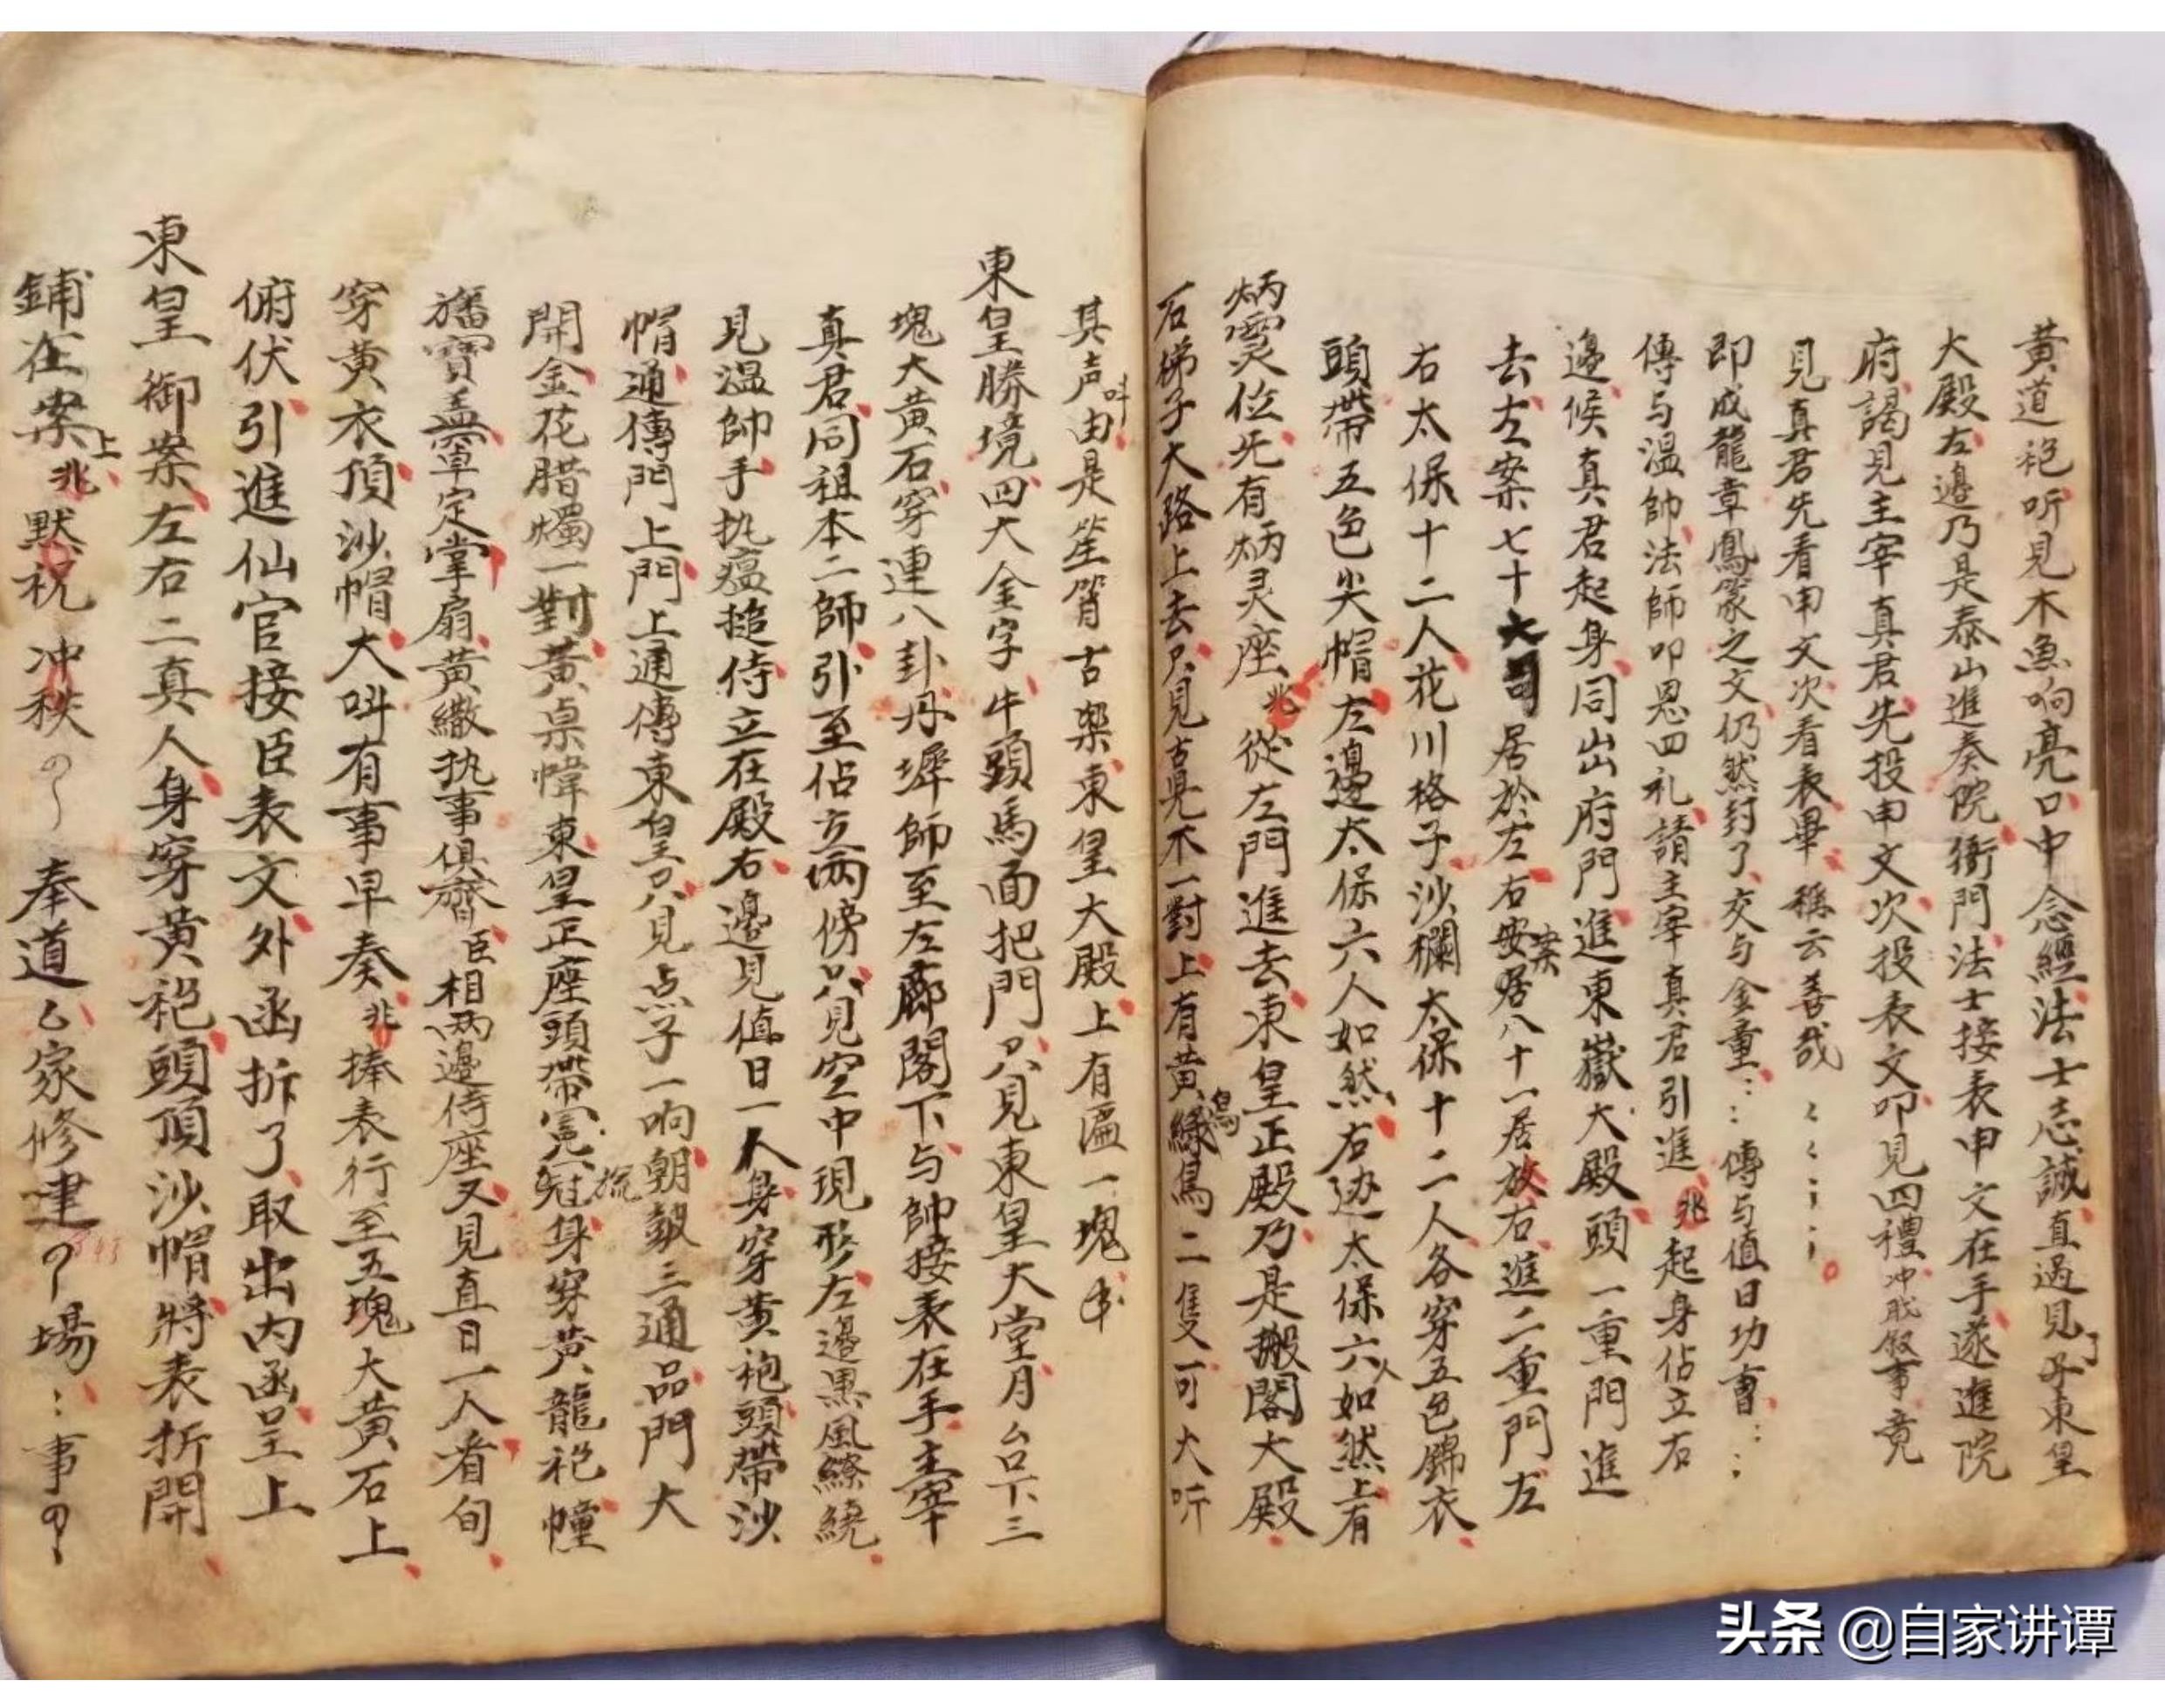 黃道袍听見木魚响亮口中念經法士志誠直過見了東皇
大殿左邊乃是泰山進奏院衙門法士接表申文在手遂進院
府謁見主宰真君先投申文次投表文叩見四禮冲戕叙事竟
見真君先看申文次看表畢稱云善哉
即成龍章鳳篆之文仍然封了交与金童傳与值日功曹
傳与溫帥法師叩恩四礼請主宰真君引進兆起身佔立右
邊候真君起身同出府門進東嶽大殿頭一重門進
去左案七十六司居於左右案居八十一居放右進二重門左
右太保十二人花川格子沙欄太保十二人各穿五色錦衣
頭帶五色尖帽左邊太保六人如然右边太保六人如然上有
炳靈位先有炳灵座兆從左門進去東皇正殿乃是搬閣大殿
石梯子大路上去只見古見木一對上有黃鳥綠鳥二隻可大听
其声叫由是笙簫古樂東皇大殿上有匾一塊
東皇勝境四大金字牛頭馬面把門只見東皇大堂月台下三
塊大黃石穿連八卦丹墀師至左廊閣下与帥接表在手主宰
真君同祖本二師引至佔立两傍只見空中現形左邊黑風繚繞
見溫帥手执瘟搥侍立在殿右邊見值日一人身穿黃袍頭帶沙
帽通傳門上門上通傳東皇只見点子一响朝鼓三通品門大
開金花腊燭一對黃桌幃東皇正座頭帶冕旒冠身穿黃龍袍幢
旛寶盖罩定掌扇黃繖执事俱齊臣相两邊侍座又見直日一人者旬
穿黃衣頂沙帽大叫有事早奏兆捧表行至五塊大黃石上
俯伏引進仙官接臣表文外函拆了取出内函呈上
東皇御案左右二真人身穿黃袍頭頂沙帽將表折開
鋪在案上兆默祝冲秩奉道厶家修建场事
头条 @自家讲谭